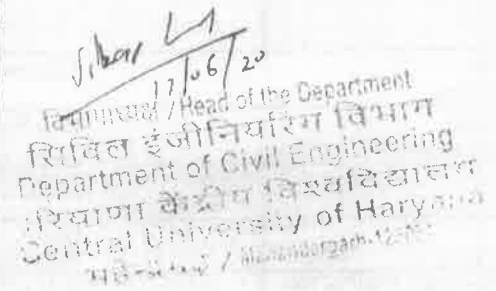 17/06/20
विभागाध्यक्ष / Head of the Department
सिविल इंजीनियरिंग विभाग
Department of Civil Engineering
हरियाणा केंद्रीय विश्वविद्यालय
Central University of Haryana